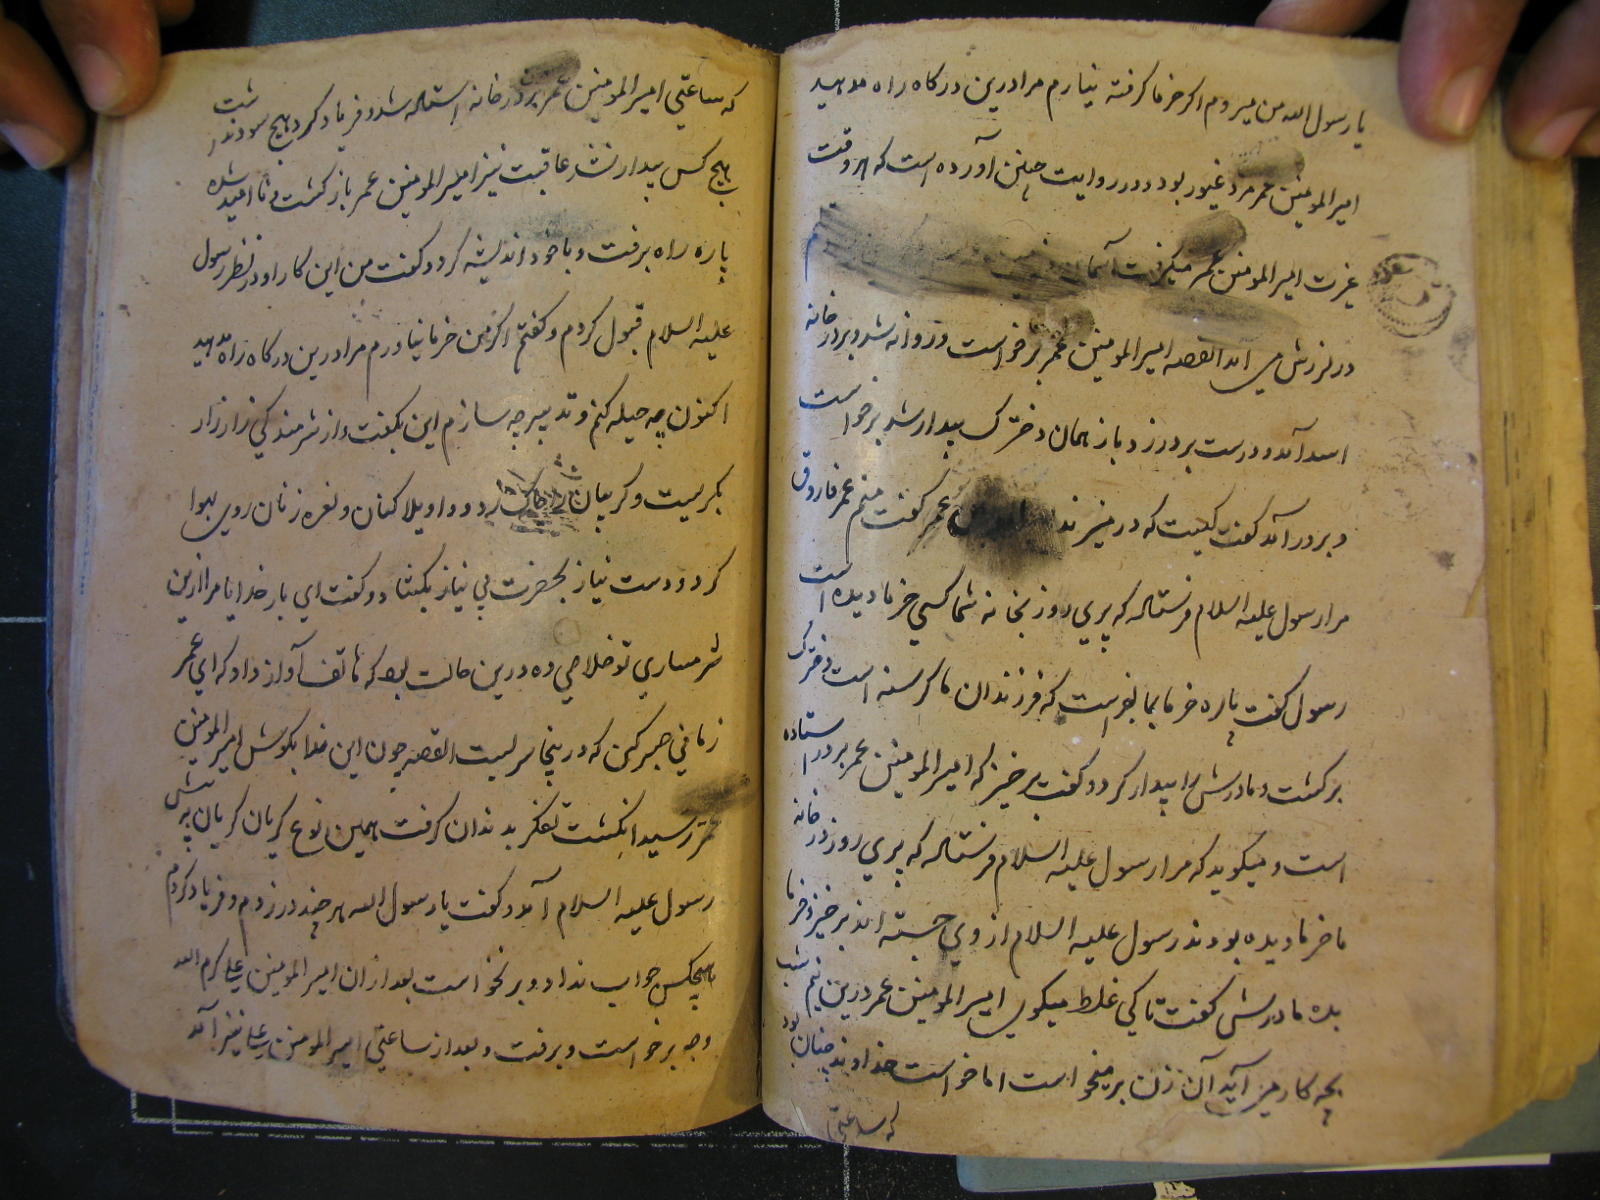 یا رسول الله من میروم اگر خرما گرفته نیارم مرا درین درگاه راه مدهید
امیر المومنین عمر مرد غیور بود و در روایت چنین آورده است که هر وقت
غیرت امیر المومنین عمر میگرفت آسمان
در لرزش می آمد القصه امیر المومنین عمر برخواست و روانه شد و بر در خانه
اسد آمد و دست بر در زد باز همان دخترک بیدار شد برخواست
و بر در آمد گفت کیست که در میزند عمر گفت منم عمر فاروق
مرا رسول علیه السلام فرستاده که پری روز بخانه شما کسی خرما دیده است
رسول گفت پاره خرما بما بفرست که فرزندان ما گرسنه است دخترک
برگشت و مادرش را بیدار کرد و گفت برخیز که امیر المومنین عمر بر در استاده
است و میگوید که مرا رسول علیه السلام فرستاده که پری روز در خانه
ما خرما دیده بودند رسول علیه السلام از وی جسته اند برخیز و خرما
بده مادرش گفت تا کی غلط میکوی امیر المومنین عمر درین نیم شب
بچه کار میز آید آن زن برمیخواست اما خواست خداوند چنان بود
که ساعتی
که ساعتی امیر المومنین عمر بر در خانه استاده شد و فریاد کرد هیچ سود نداشت
هیچ کس بیدار نشد عاقبت نیز امیر المومنین عمر باز گشت و نا امید شده
پاره راه برفت و با خود اندیشه کرد و گفت من این کار را در نظر رسول
علیه السلام قبول کردم و گفتم اگر من خرما نیاورم مرا درین درگاه راه مدهید
اکنون چه حیله کنم و تدبیر چه سازم این بگفت و از شرمندگی زار زار
بگریست و گریبان را چاک زد و واویلا کنان و نعره زنان روی بهوا
کرد و دست نیاز بحضرت بی نیاز بگشاد و گفت ای بار خدایا مرا ازین
شرمساری تو خلاصی ده درین حالت بود که هاتف آواز داد که ای عمر
زمانی صبر کن که در ینجا سریست القصه چون این ندا بگوش امیر المومنین
عمر رسید انگشت تفکر بدندان گرفت همین نوع گریان گریان پیش
رسول علیه السلام آمد و گفت یا رسول الله هر چند در زدم و فریاد کردم
هیچکس جواب نداد و بر نخواست بعد ازان امیر المومنین علی کرم الله
وجه برخواست و برفت و بعد از ساعتی امیر المومنین علی نیز آمد